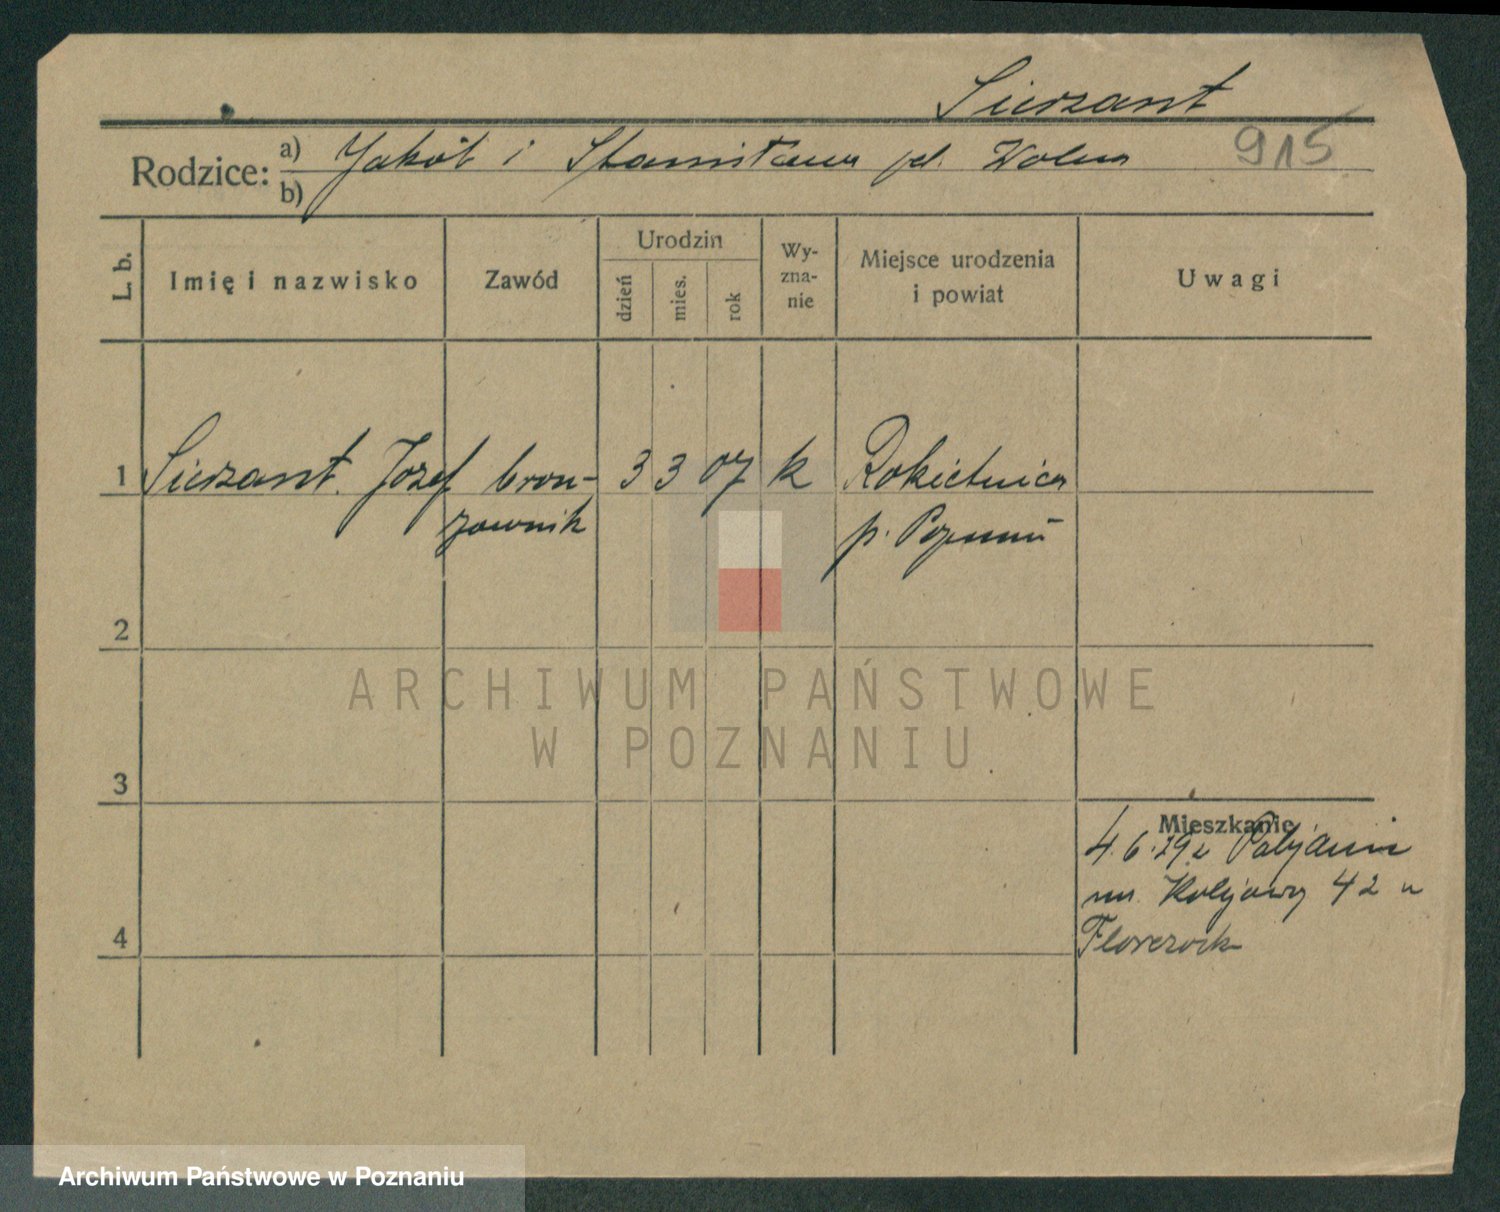 Sierzant
Rodzice: a) Jakób i Stanisława pd. Wolna 915
b)
L. b. Imię i nazwisko Zawód Urodzin dzień mies. rok Wy-zna-nie Miejsce urodzenia i powiat Uwagi
1 Sierzant Józef bron- 3 3 07 k Rokietnica
zownik p. Poznań
2
ARCHIWUM PAŃSTWOWE
W POZNANIU
3
Mieszkanie
4.6.29 z
42 u
4
Archiwum Państwowe w Poznaniu